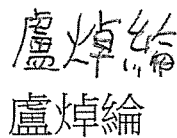 盧焯綸
盧焯綸